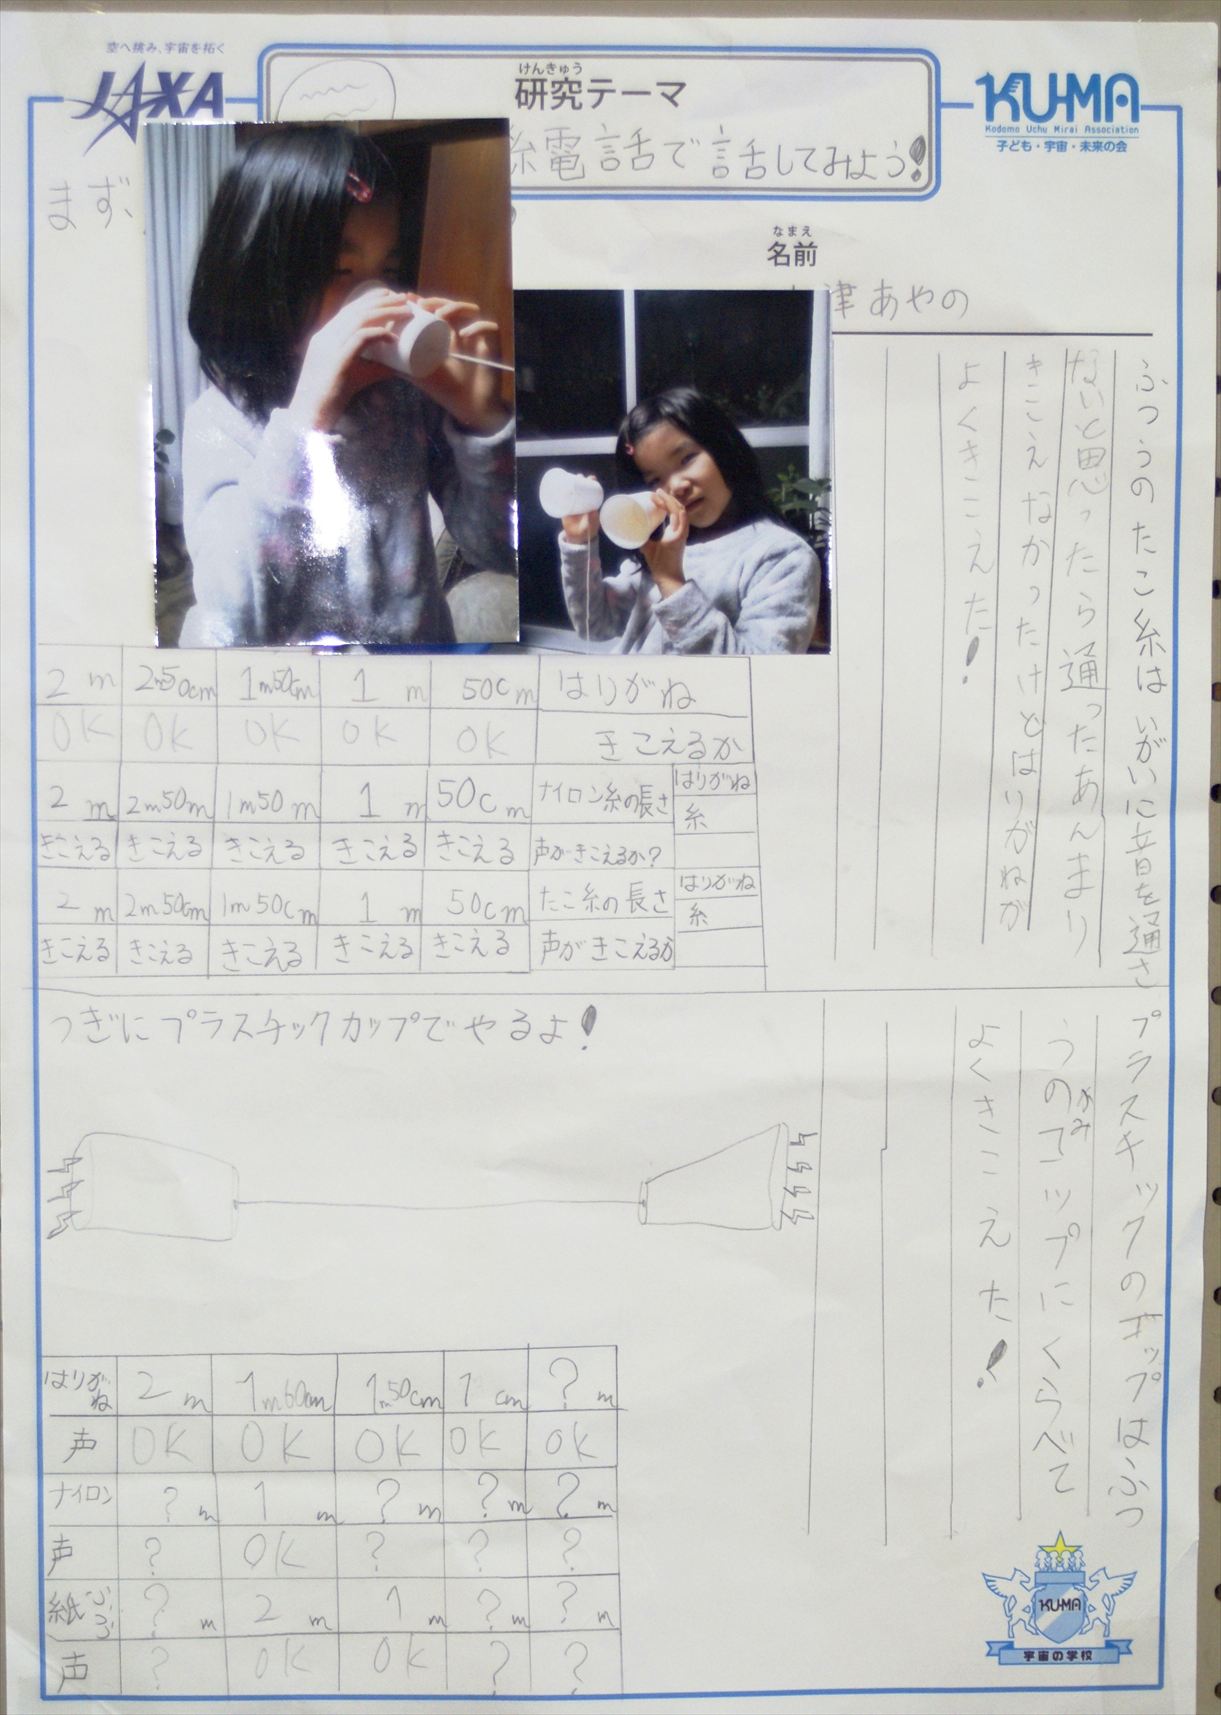 空へ挑み、宇宙を拓く
JAXA
けんきゅう
研究テーマ
糸電話で話してみよう!
KU-MA
Kodomo Uchu Mirai Association
子ども・宇宙・未来の会
まず、
なまえ
名前
津あやの
ふつうのたこ糸はいがいに音を通さ
ないと思ったら通ったあんまり
きこえなかったけどはりがねが
よくきこえた!
2m 2m50cm 1m50cm 1m 50cm はりがね
OK OK OK OK OK きこえるか
2m 2m50m 1m50m 1m 50cm ナイロン糸の長さ はりがね
糸
きこえる きこえる きこえる きこえる きこえる 声がきこえるか?
2m 2m50cm 1m50cm 1m 50cm たこ糸の長さ はりがね
糸
きこえる きこえる きこえる きこえる きこえる 声がきこえるか
つぎにプラスチックカップでやるよ!
プラスチックのコップはふつ
うのかみコップにくらべて
よくきこえた!
はりがね 2m 1m60cm 1m50cm 1cm ?m
声 OK OK OK OK OK
ナイロン ?m 1m ?m ?m ?m
声 ? OK ? ? ?
紙 ?m 2m 1m ?m ?m
声 ? OK OK ? ?
KU-MA
宇宙の学校